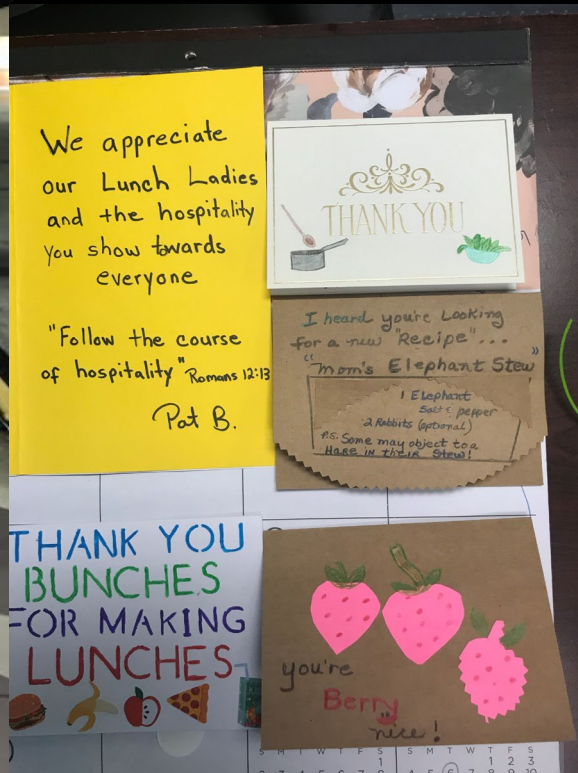 We appreciate
our Lunch Ladies
and the hospitality
you show towards
everyone
"Follow the course
of hospitality" Romans 12:13
Pat B.
THANK YOU
I heard you're Looking
for a new "Recipe"...
"Mom's Elephant Stew"
1 Elephant
Salt & pepper
2 Rabbits (optional)
P.S. Some may object to a
Hare in their Stew!
THANK YOU
BUNCHES
FOR MAKING
LUNCHES
you're
Berry
nice!
S M T W T F S
1
S M T W T F S
1 2 3